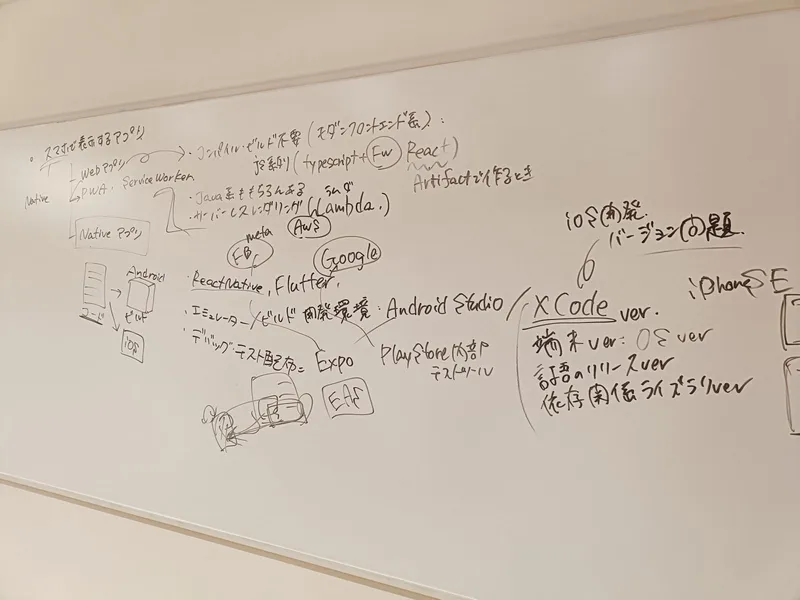 ・スマホで表示するアプリ
Native
Webアプリ
PWA. ServiceWorker
Native アプリ
・コンパイル・ビルド不要 (モダンフロントエンド系):
js系的 (typescript + Fw React)
Artifactで作るとき
・Java系ももちろんある
・サーバーレスレンダリング (Lambda.)
らむだ
AWS
meta
FB
Google
・ReactNative, Flutter.
・エミュレーター/ビルド 開発環境: Android Studio / XCode ver.
・デバッグ・テスト配布= Expo
EAS
PlayStore内部
テストツール
コード
Android
ビルド
iOS
iOS開発.
バージョン問題.
端末ver: OS ver
言語のリリースver
依存関係ライブラリver
iPhoneSE